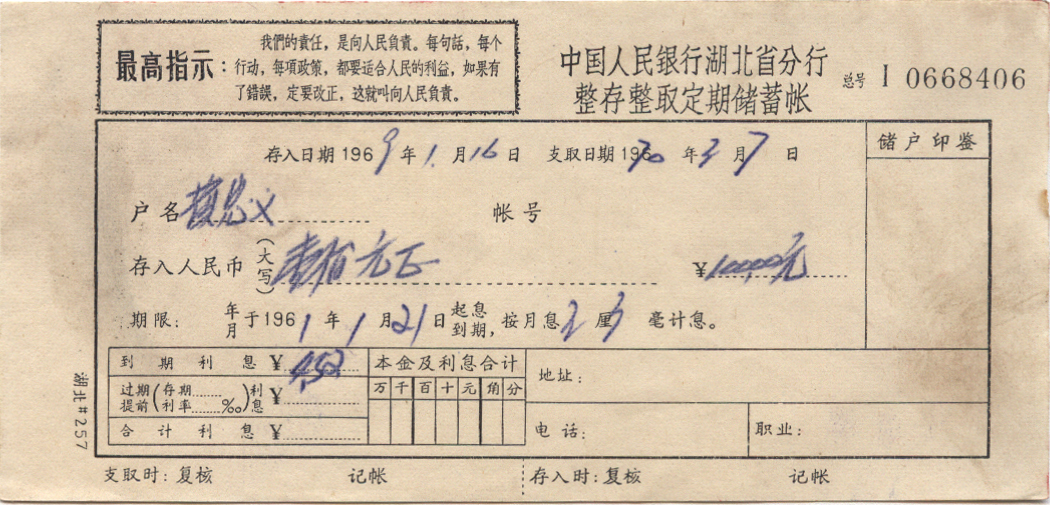 最高指示：
我們的責任，是向人民負責。每句話，每个
行动，每項政策，都要适合人民的利益，如果有
了錯誤，定要改正，这就叫向人民負責。
中国人民银行湖北省分行
整存整取定期储蓄帐
总号 I 0668406
存入日期 1969年1月16日 支取日期 19670年3月7日
储户印鉴
户名 忠义 帐号
存入人民币（大写）壹佰元正 ¥100.00元
期限： 年月于1961年1月21日起息到期，按月息 2厘3毫计息。
到期利息¥4.52
过期提前（存期……利率……‰）利息¥
合计利息¥
本金及利息合计
万 千 百 十 元 角 分
地址：
电话： 职业：
湖北#257
支取时：复核 记帐 存入时：复核 记帐